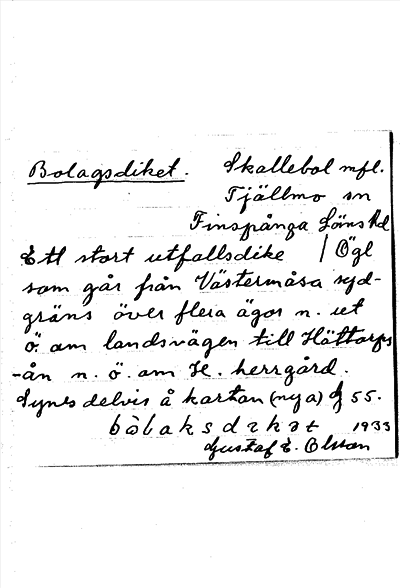 Bolagsdiket. Skallebol mfl.
Tjällmo sn
Finspånga Läns hd
Ett stort utfallsdike / Ögl
som går från Västermåsa syd-
gräns över flera ägor n. ut
ö. om landsvägen till Hättorps
-ån n. ö. om H. herrgård.
Synes delvis å kartan (nya) g 55.
bòlaksdikət 1933
Gustaf E. Olsson